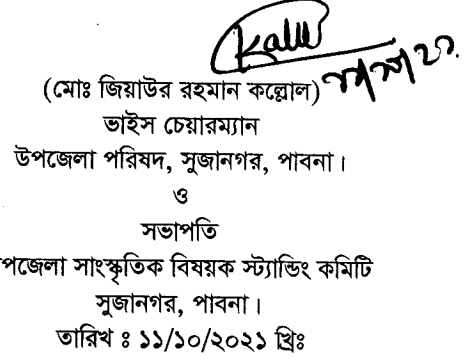 (মোঃ জিয়াউর রহমান কল্লোল)
ভাইস চেয়ারম্যান
উপজেলা পরিষদ, সুজানগর, পাবনা।
ও
সভাপতি
পজেলা সাংস্কৃতিক বিষয়ক স্ট্যান্ডিং কমিটি
সুজানগর, পাবনা।
তারিখ ঃ ১১/১০/২০২১ খ্রিঃ